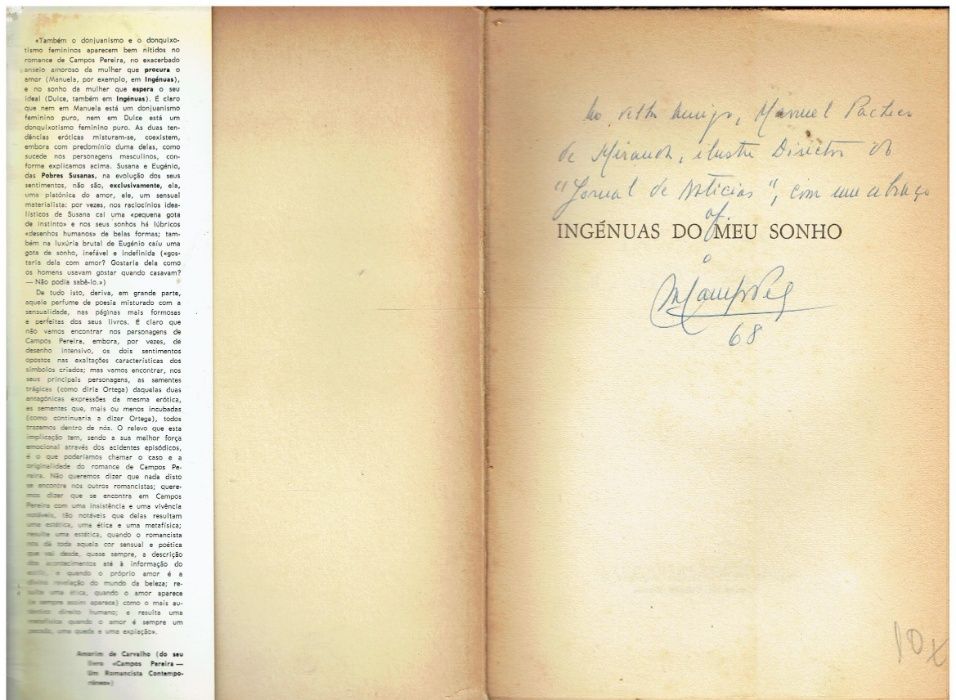 «Também o donjuanismo e o donquixo-
tismo femininos aparecem bem nítidos no
romance de Campos Pereira, no exacerbado
anseio amoroso da mulher que procura o
amor (Manuela, por exemplo, em Ingénuas),
e no sonho da mulher que espera o seu
ideal (Dulce, também em Ingénuas). É claro
que nem em Manuela está um donjuanismo
feminino puro, nem em Dulce está um
donquixotismo feminino puro. As duas ten-
dências eróticas misturam-se, coexistem,
embora com predomínio duma delas, como
sucede nos personagens masculinos, con-
forme explicamos acima. Susana e Eugénio,
das Pobres Susanas, na evolução dos seus
sentimentos, não são, exclusivamente, ela,
uma platónica do amor, ele, um sensual
materialista: por vezes, nos raciocínios idea-
lísticos de Susana cai uma «pequena gota
de instinto» e nos seus sonhos há lúbricos
«desenhos humanos» de belas formas; tam-
bém na luxúria brutal de Eugénio caíu uma
gota de sonho, inefável e indefinida («gos-
taria dela com amor? Gostaria dela como
os homens usavam gostar quando casavam?
— Não podia sabê-lo.»)
De tudo isto, deriva, em grande parte,
aquele perfume de poesia misturado com a
sensualidade, nas páginas mais formosas
e perfeitas dos seus livros. É claro que
não vamos encontrar nos personagens de
Campos Pereira, embora, por vezes, de
desenho intensivo, os dois sentimentos
opostos nas exaltações características dos
símbolos criados; mas vamos encontrar, nos
seus principais personagens, as sementes
trágicas (como diria Ortega) daquelas duas
antagónicas expressões da mesma erótica,
as sementes que, mais ou menos incubadas
(como continuaria a dizer Ortega), todos
trazemos dentro de nós. O relevo que esta
implicação tem, sendo a sua melhor força
emocional através dos acidentes episódicos,
é o que poderíamos chamar o caso e a
originalidade do romance de Campos Pe-
reira. Não queremos dizer que nada disto
se encontre nos outros romancistas; quere-
mos dizer que se encontra em Campos
Pereira com uma insistência e uma vivência
notáveis, tão notáveis que delas resultam
uma estética, uma ética e uma metafísica;
resulta uma estética, quando o romancista
nos dá toda aquela cor sensual e poética
que vai desde, quase sempre, a descrição
dos acontecimentos até à informação do
estilo, e quando o próprio amor é a
divina revelação do mundo da beleza; re-
sulta uma ética, quando o amor aparece
(e sempre assim aparece) como o mais au-
têntico direito humano; e resulta uma
metafísica quando o amor é sempre um
pecado, uma queda e uma expiação».
Amorim de Carvalho (do seu
livro «Campos Pereira —
Um Romancista Contempo-
râneo»)
Ao velho Amigo, Manuel Pacheco
de Miranda, ilustre Director do
"Jornal de Notícias", com um abraço
INGÉNUAS DO MEU SONHO
68
10x